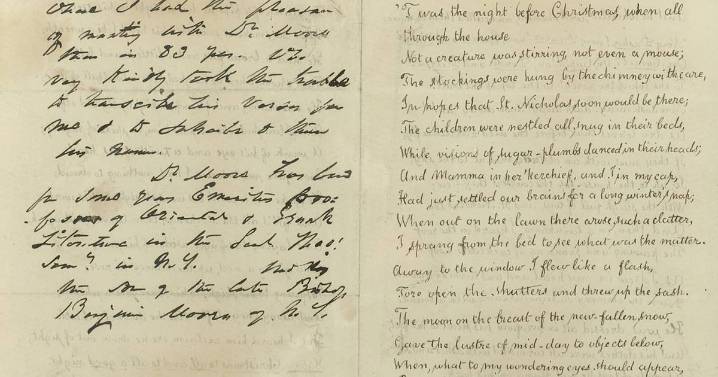 I had the pleasure
of meeting with Dr. Moore
then in 83 yrs. Who
very kindly took the trouble
to transcribe this version for
me & to subscribe to them
his name.
Dr. Moore has been
for some years Emeritus Pro=
fessor of Oriental & Greek
Literature in the Theol
Semy. in N.Y.
the son of the late Bishop
Benjamin Moore of N.Y.
'Twas the night before Christmas, when all
through the house
Not a creature was stirring, not even a mouse;
The stockings were hung by the chimney with care,
In hopes that St. Nicholas soon would be there;
The children were nestled all snug in their beds,
While visions of sugar-plumbs danced in their heads;
And Mamma in her 'kerchief, and I in my cap,
Had just settled our brains for a long winter's nap;
When out on the lawn there arose such a clatter,
I sprang from the bed to see what was the matter.
Away to the window I flew like a flash,
Tore open the shutters and threw up the sash.
The moon on the breast of the new-fallen snow,
Gave the lustre of mid-day to objects below,
When, what to my wondering eyes should appear,